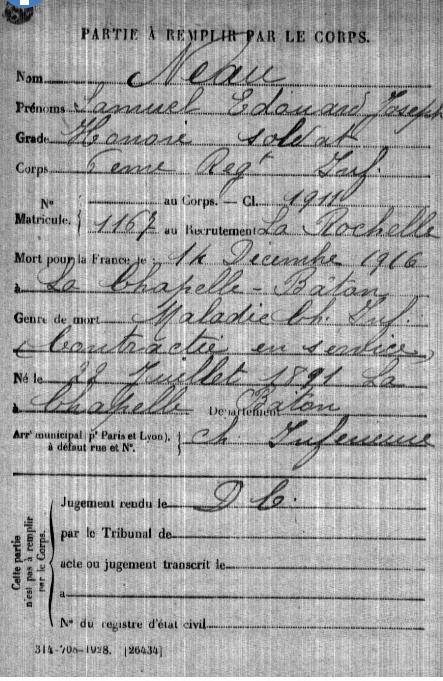 PARTIE À REMPLIR PAR LE CORPS.
Nom Neau
Prénoms Samuel Edouard Joseph
Grade Honoré soldat
Corps 6eme Regt Inf.
N° au Corps. — Cl. 1911
Matricule. 1167 au Recrutement La Rochelle
Mort pour la France le 14 Décembre 1916
à La Chapelle-Bâton
Genre de mort Maladie Ch. Inf.
(Contractée en service)
Né le 22 Juillet 1891 La
à Chapelle Département Bâton
Arrt municipal (pr Paris et Lyon), à défaut rue et N°. Ch Inferieure
Cette partie n'est pas à remplir par le Corps.
Jugement rendu le D C.
par le Tribunal de
acte ou jugement transcrit le
a
N° du registre d'état civil
314-708-1928. [26434]